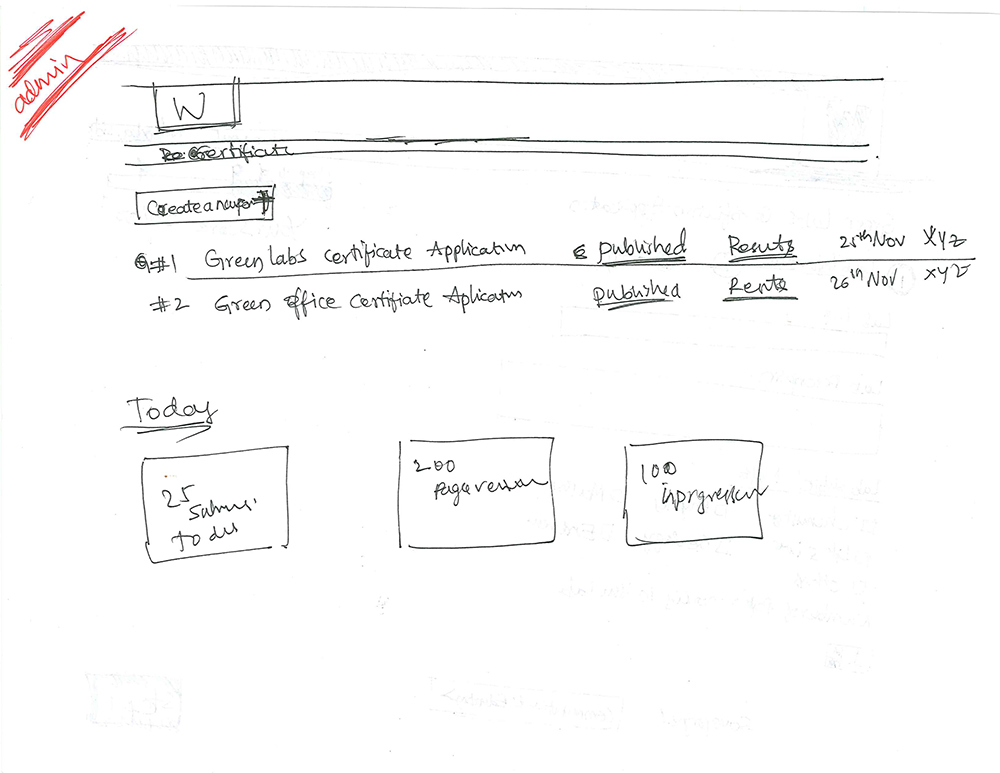 admin
W
Certificate
Create a new
#1 Green labs certificate Application published Results 25th Nov XYZ
#2 Green office Certifiate Aplication published 26th Nov XYZ
Today
25
today
200
100